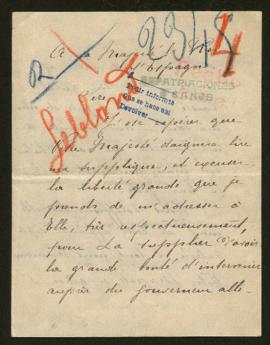 R
2318
4
Leblon
A Sa Majesté le Roi
d'Espagne
REPATRIACIONES
SANOS
Pedir informes
Que se hace así
Devolver
Sire
C'est espérer que
Votre Majesté daignera lire
ma supplique, et excuser
la liberté grande que je
prends de m'adresser à
Elle, très respectueusement,
pour La supplier d'avoir
la grande bonté d'intervenir
auprès du gouvernement alle-